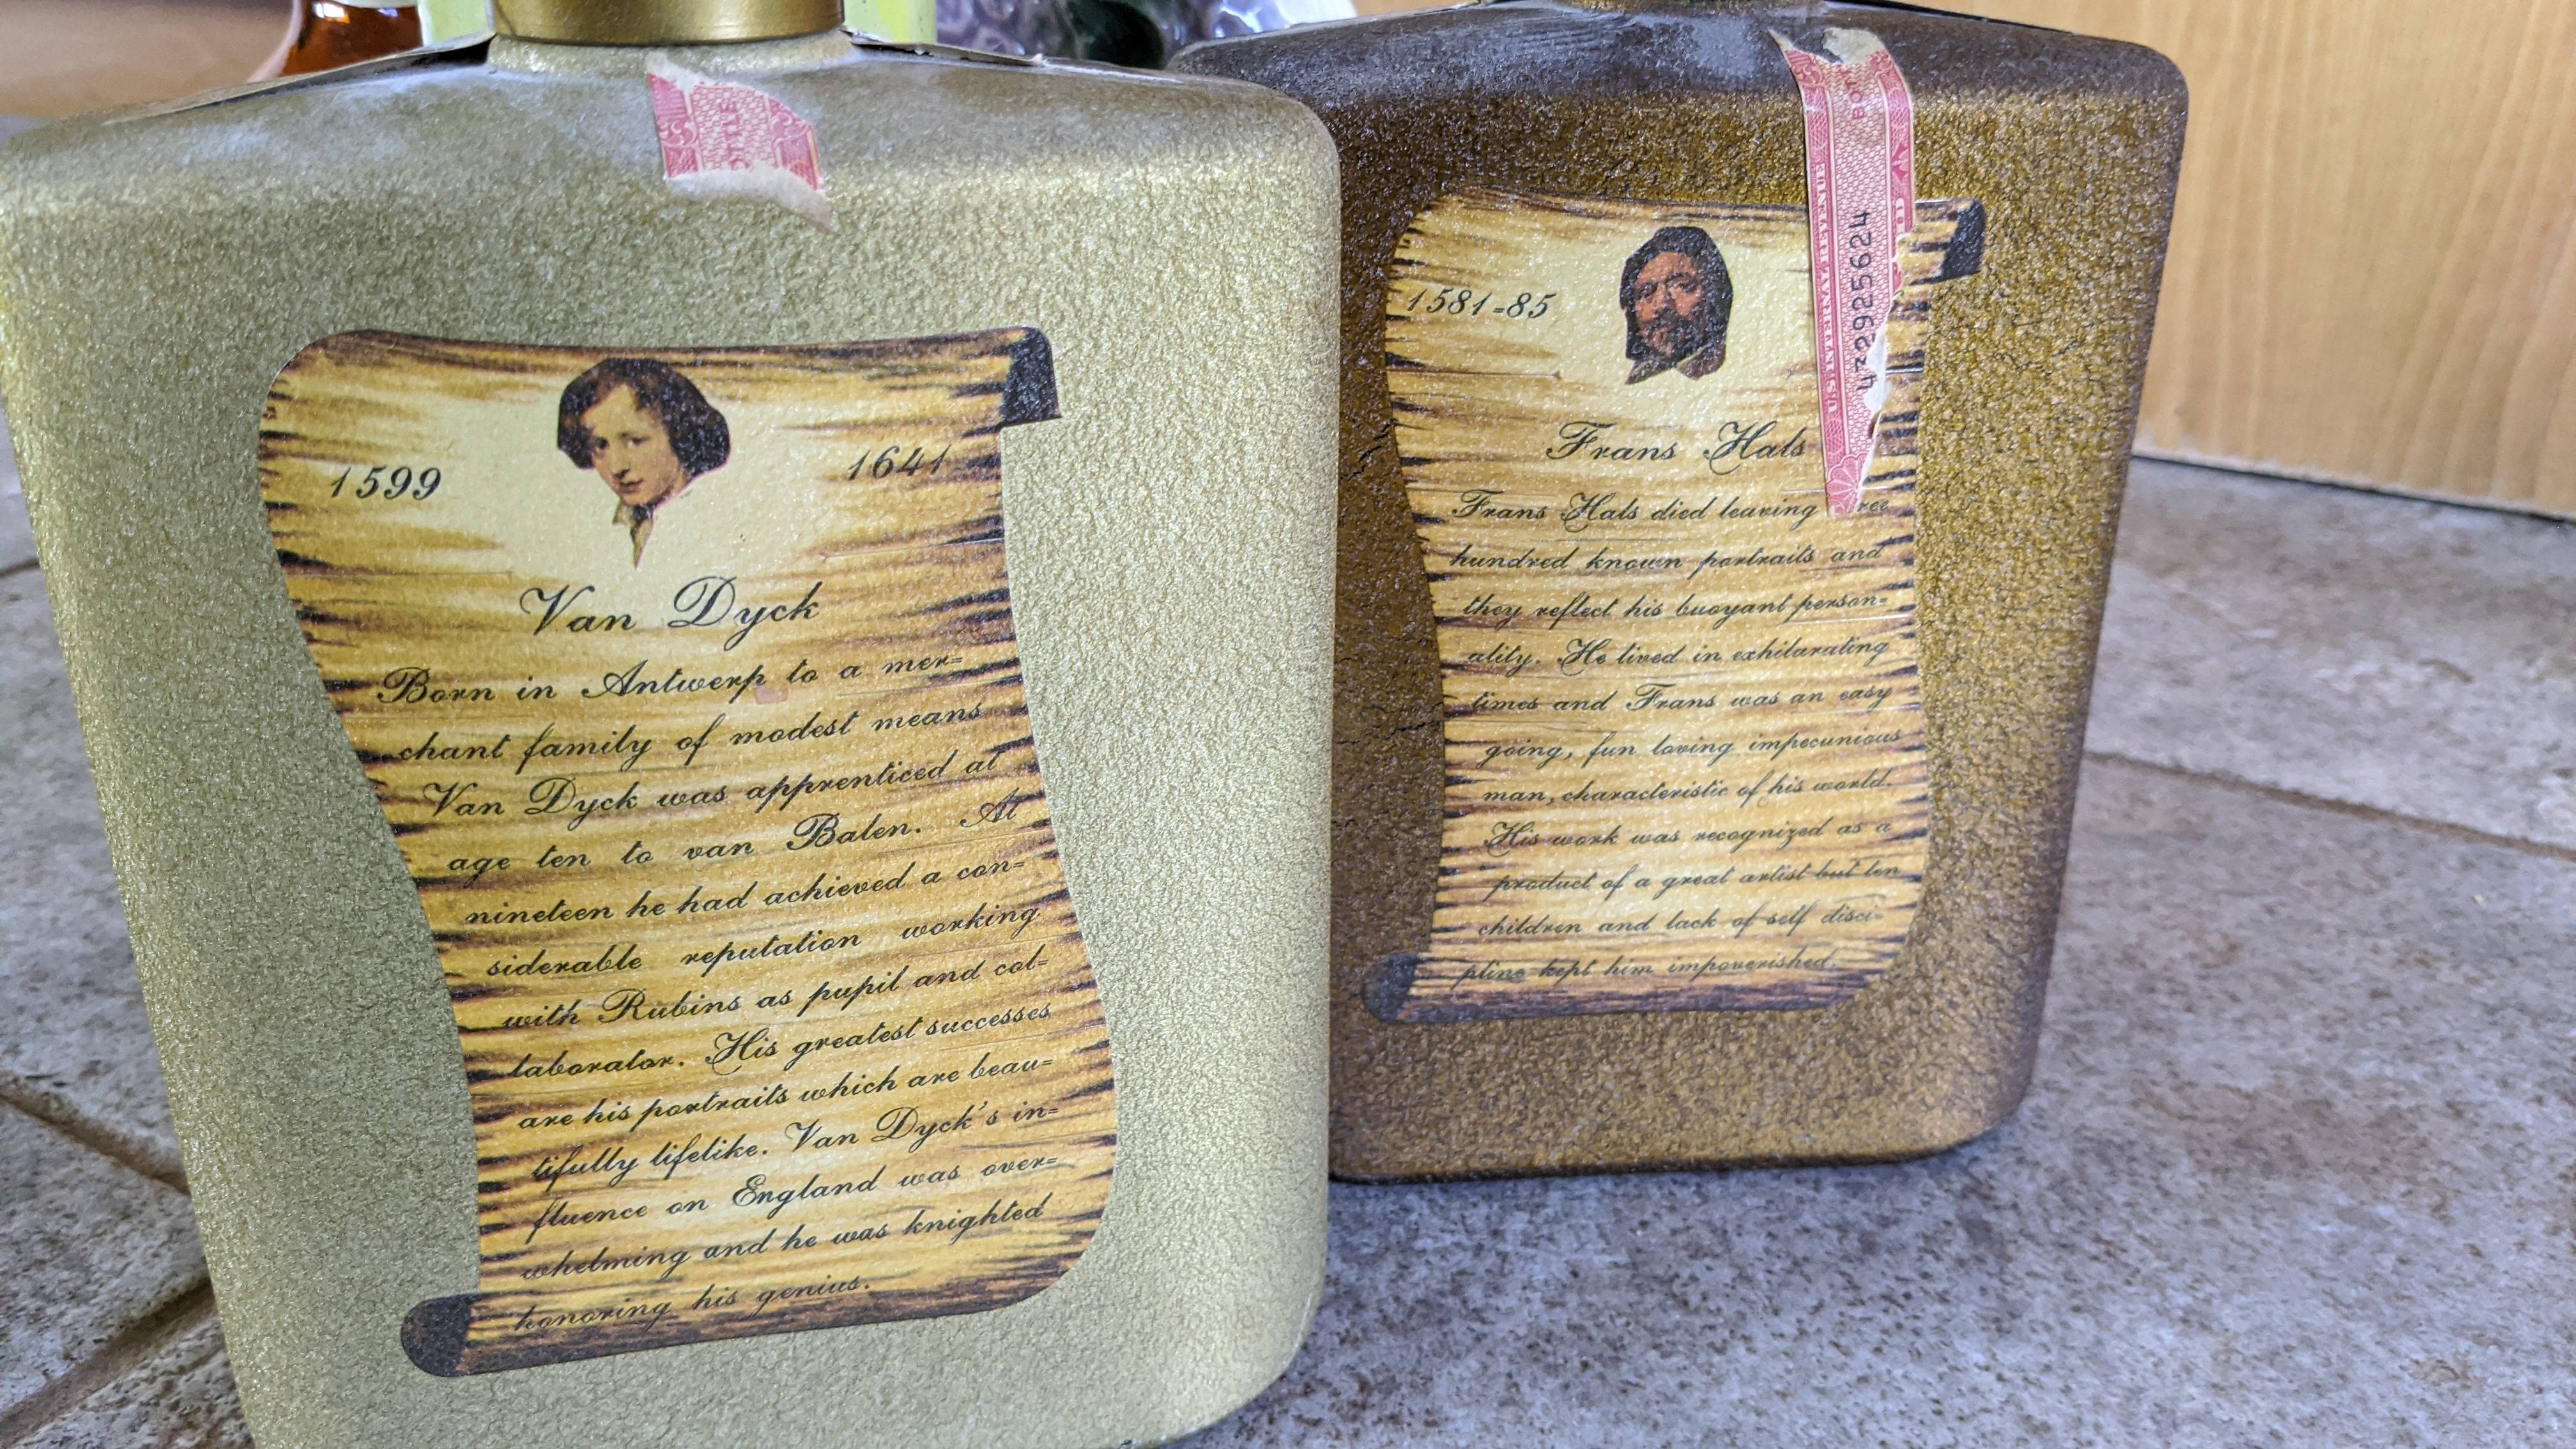 OTTLE
1599
1641
Van Dyck
Born in Antwerp to a mer=
chant family of modest means
Van Dyck was apprenticed at
age ten to van Balen. At
nineteen he had achieved a con=
siderable reputation working
with Rubins as pupil and col=
laborator. His greatest successes
are his portraits which are beau=
tifully lifelike. Van Dyck's in=
fluence on England was over=
whelming and he was knighted
honoring his genius.
U.S. INTERNAL REVENUE
1581=85
Frans Hals
Frans Hals died leaving ree
hundred known portraits and
they reflect his buoyant person=
ality. He lived in exhilarating
times and Frans was an easy
going, fun loving impecunious
man, characteristic of his world.
His work was recognized as a
product of a great artist but ten
children and lack of self disci=
pline kept him impoverished.